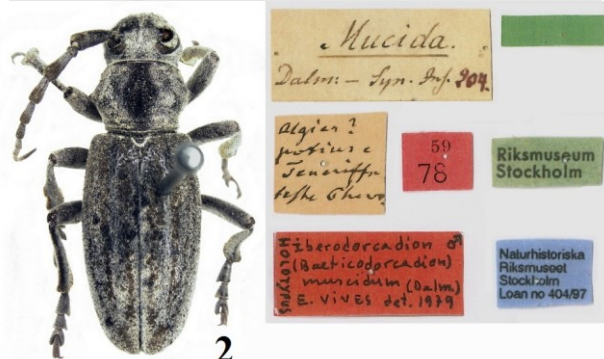 2
Mucida.
Dalm: — Syn. Ins. 204.
Algier?
potius e
Teneriffa
teste Chevr
59
78
Riksmuseum
Stockholm
HOLOTYPUS
Iberodorcadion ♂
(Baeticodorcadion)
muscidum (Dalm)
E. VIVES det. 1979
Naturhistoriska
Riksmuseet
Stockholm
Loan no 404/97